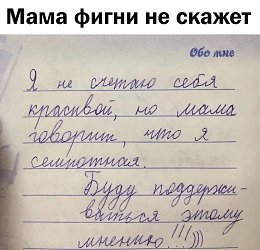 Мама фигни не скажет
Обо мне
Я не считаю себя
красивой, но мама
говорит, что я
семпотная.
Буду поддержи-
ваться этому
мнению!!!)))